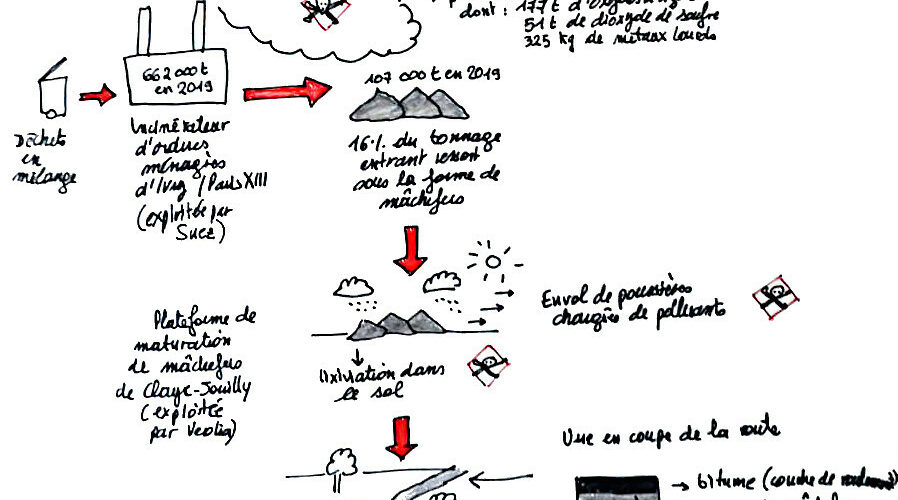 dont : 177 t d'
51 t de dioxyde de soufre
325 kg de métaux lourds
662 000 t
en 2019
107 000 t en 2019
Déchets
en
mélange
Incinérateur
d'ordures
ménagères
d'Ivry / Paris XIII
(exploitée par
Suez)
16 % du tonnage
entrant ressort
sous la forme de
mâchefers
Plateforme de
maturation
de mâchefers
de Claye-Souilly
(exploitée
par Veolia)
Envol de poussières
chargées de polluants
lixiviation dans
le sol
Vue en coupe de la route
→ bitume (couche de roulement)